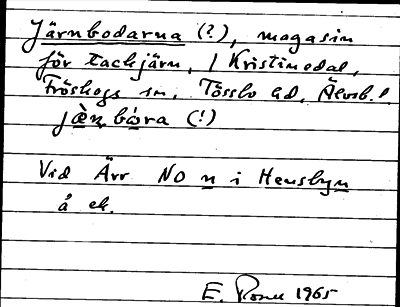 Järnbodarna (?), magasin
för tackjärn, / Kristinedal,
Fröskogs sn, Tösslo hd, Älvsb.l
jæ̀ɳbɷra (!)
Vid Ärr NO n i Hensbyn
å ek.
E. 1965